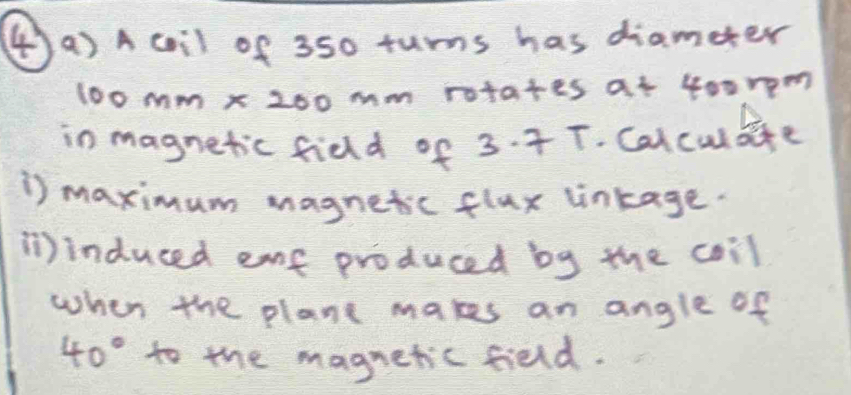 4 a) A coil of 350 turns has diameter
100 mm x 200 mm rotates at 400 rpm
in magnetic field of 3.7 T. Calculate
i) maximum magnetic flux linkage.
ii) induced emf produced by the coil
when the plane makes an angle of
40° to the magnetic field.